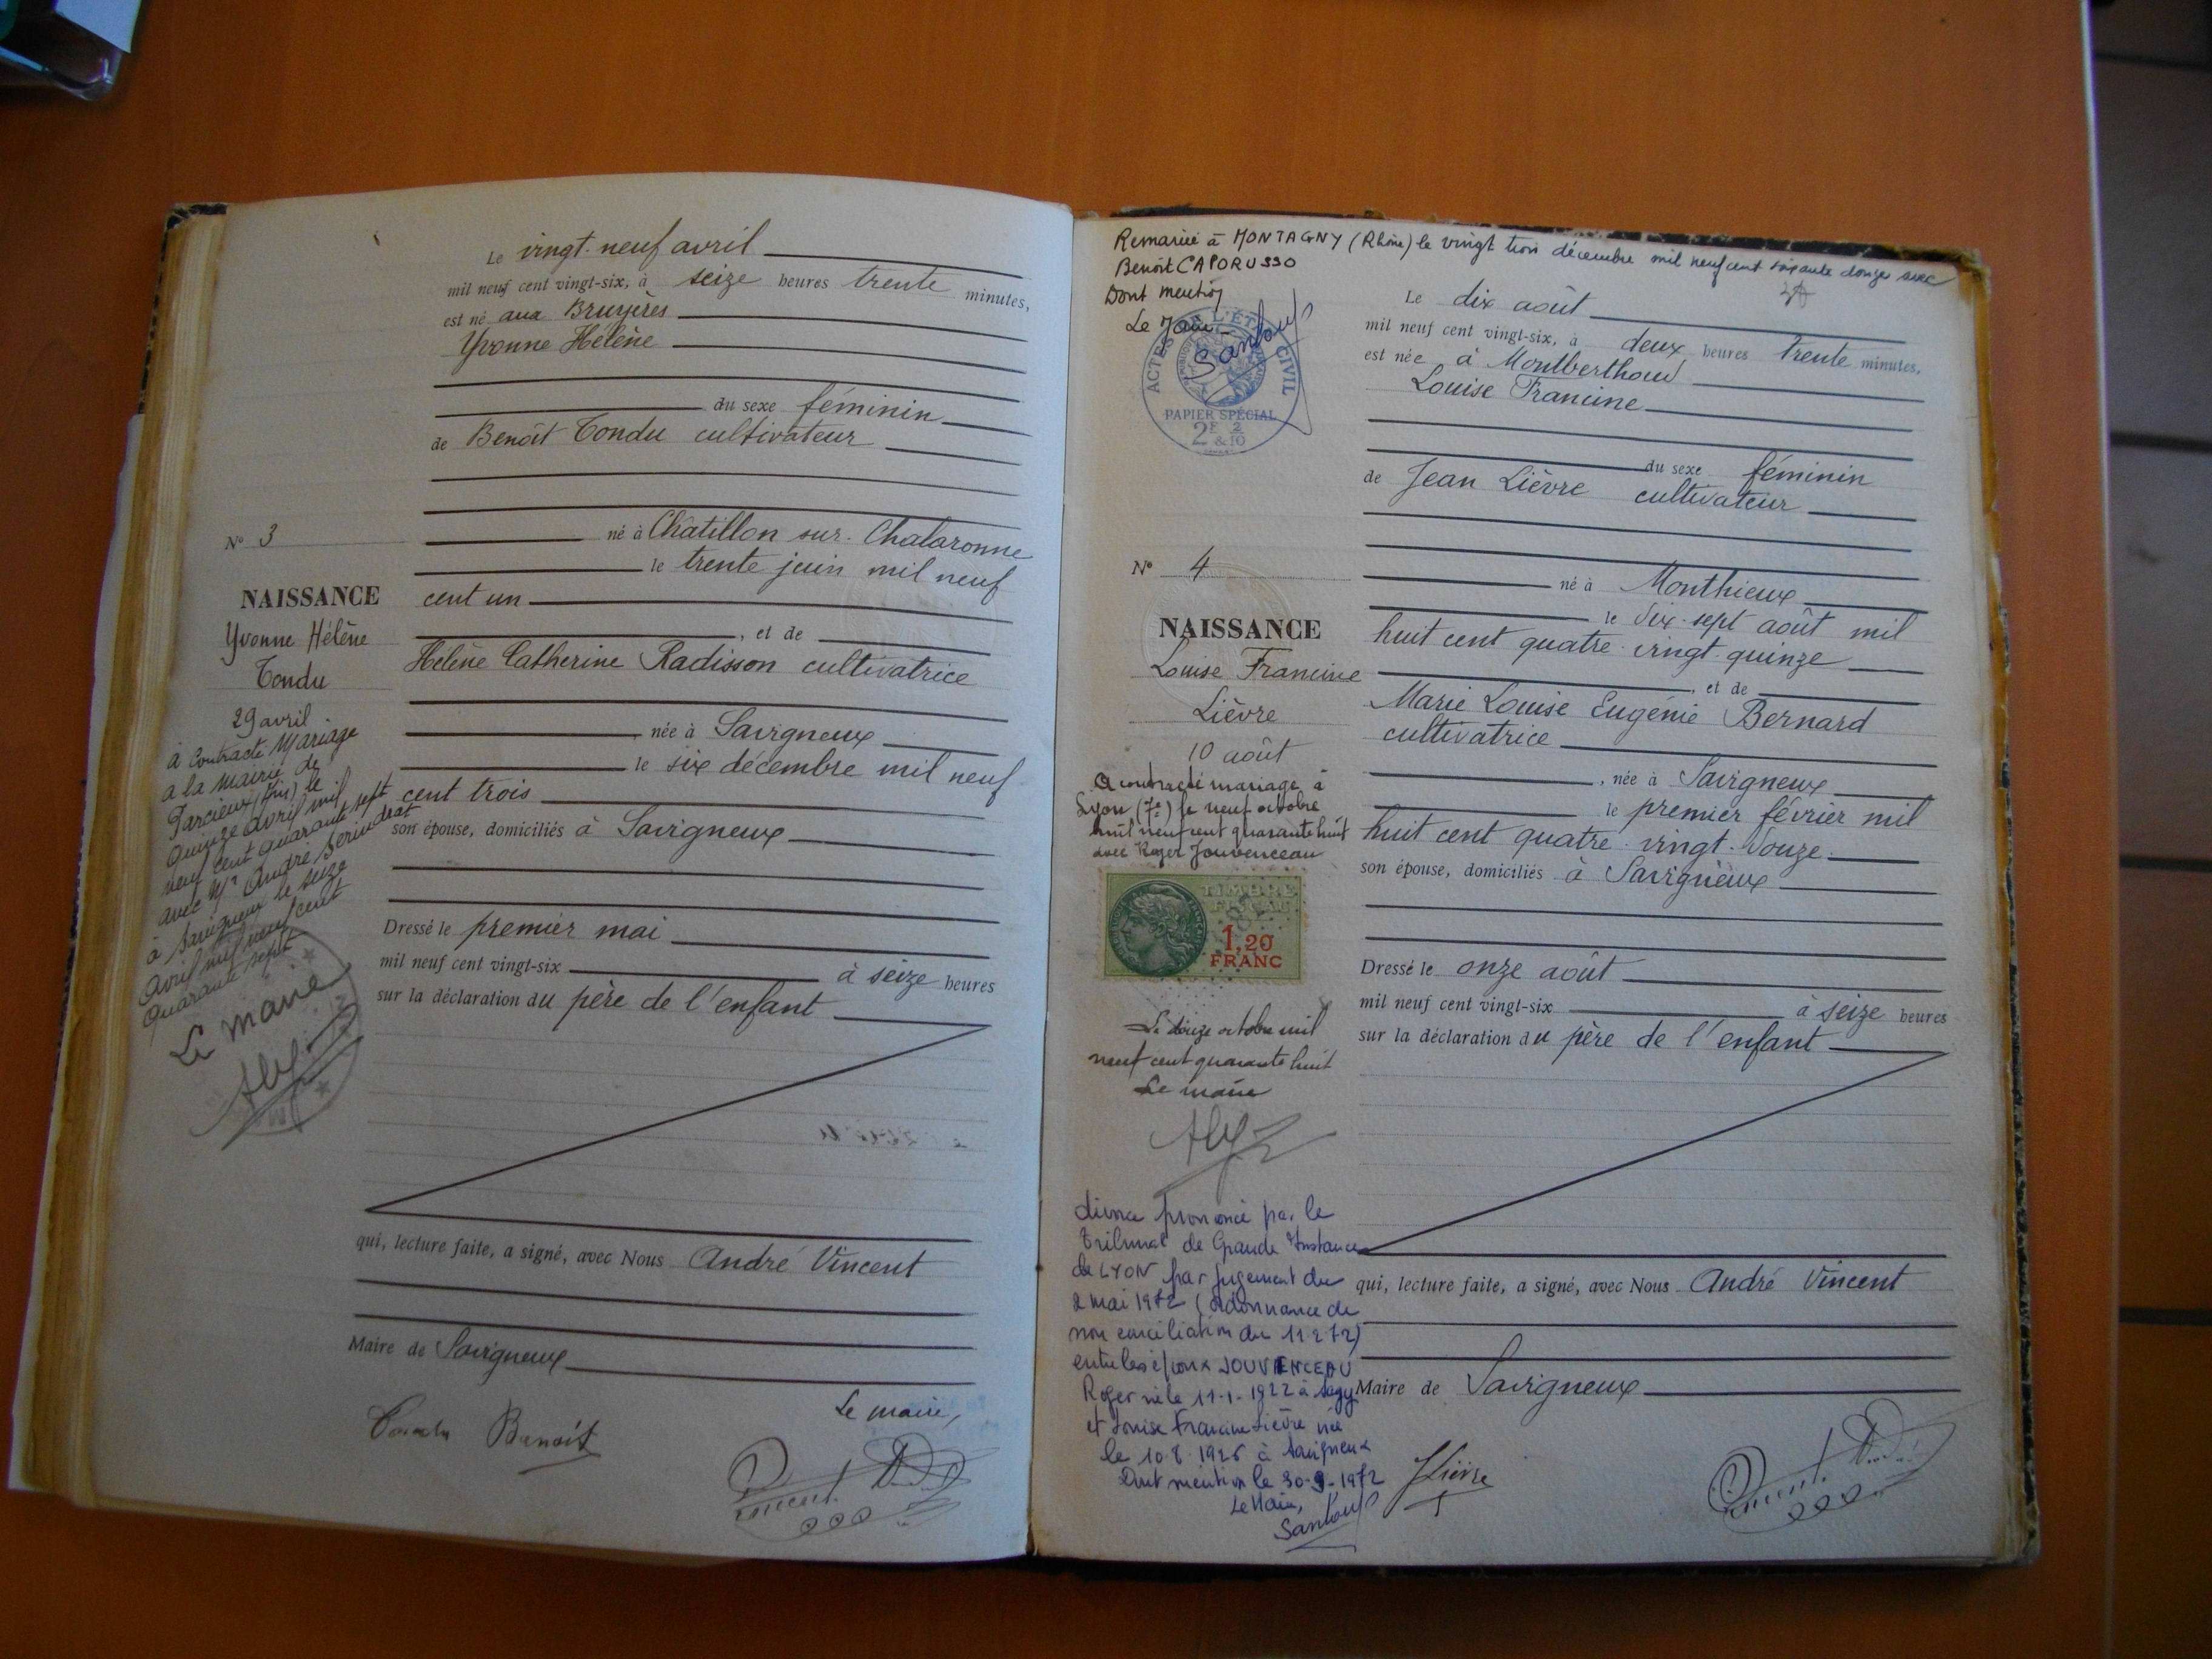 Le vingt-neuf avril
mil neuf cent vingt-six, à seize heures trente minutes,
est né aux Bruyères
Yvonne Hélène
du sexe féminin
de Benoît Tondu cultivateur
né à Châtillon sur-Chalaronne
le trente juin mil neuf
cent un
, et de
Hélène Catherine Radisson cultivatrice
née à Savigneux
le six décembre mil neuf
cent trois
son épouse, domiciliés à Savigneux
Dressé le premier mai
mil neuf cent vingt-six à seize heures
sur la déclaration du père de l'enfant
qui, lecture faite, a signé, avec Nous André Vincent
Maire de Savigneux
Le maire,
Tondu Benoit
Vincent
N° 3
NAISSANCE
Yvonne Hélène
Tondu
29 avril
à contracté Mariage
a la mairie de
Parcieux (Ain) le
quinze avril mil
neuf cent quarante sept
avec Mr André
à Savigneux le seize
avril mil neuf cent
quarante sept
Le maire
Remariée à MONTAGNY (Rhône) le vingt trois décembre mil neuf cent soixante douze avec
Benoît CAPORUSSO
Dont mention
Le Maire
ACTES DE L'ÉTAT CIVIL
PAPIER SPÉCIAL
2F 2/10
Le dix août
mil neuf cent vingt-six, à deux heures trente minutes,
est née à Montberthoud
Louise Francine
du sexe féminin
de Jean Lièvre cultivateur
né à Monthieux
le dix-sept août mil
huit cent quatre-vingt-quinze
, et de
Marie Louise Eugénie Bernard
cultivatrice
, née à Savigneux
le premier février mil
huit cent quatre-vingt-douze
son épouse, domiciliés à Savigneux
Dressé le onze août
mil neuf cent vingt-six à seize heures
sur la déclaration du père de l'enfant
qui, lecture faite, a signé, avec Nous André Vincent
Maire de Savigneux
JLièvre
Vincent
N° 4
NAISSANCE
Louise Francine
Lièvre
10 août
A contracté mariage à
Lyon (7e) le neuf octobre
mil neuf cent quarante huit
avec Roger Jouvenceau
TIMBRE
FISCAL
1,20
FRANC
Le douze octobre mil
neuf cent quarante huit
Le maire
divorce prononcé par le
Tribunal de Grande Instance
de LYON par jugement du
2 mai 1972 (ordonnance de
non conciliation du 11 2 72)
entre les époux JOUVENCEAU
Roger né le 11-1-1922 à Sagy
et Louise Francine Lièvre née
le 10.8.1926 à Savigneux
Dont mention le 30-9-1972
Le Maire,